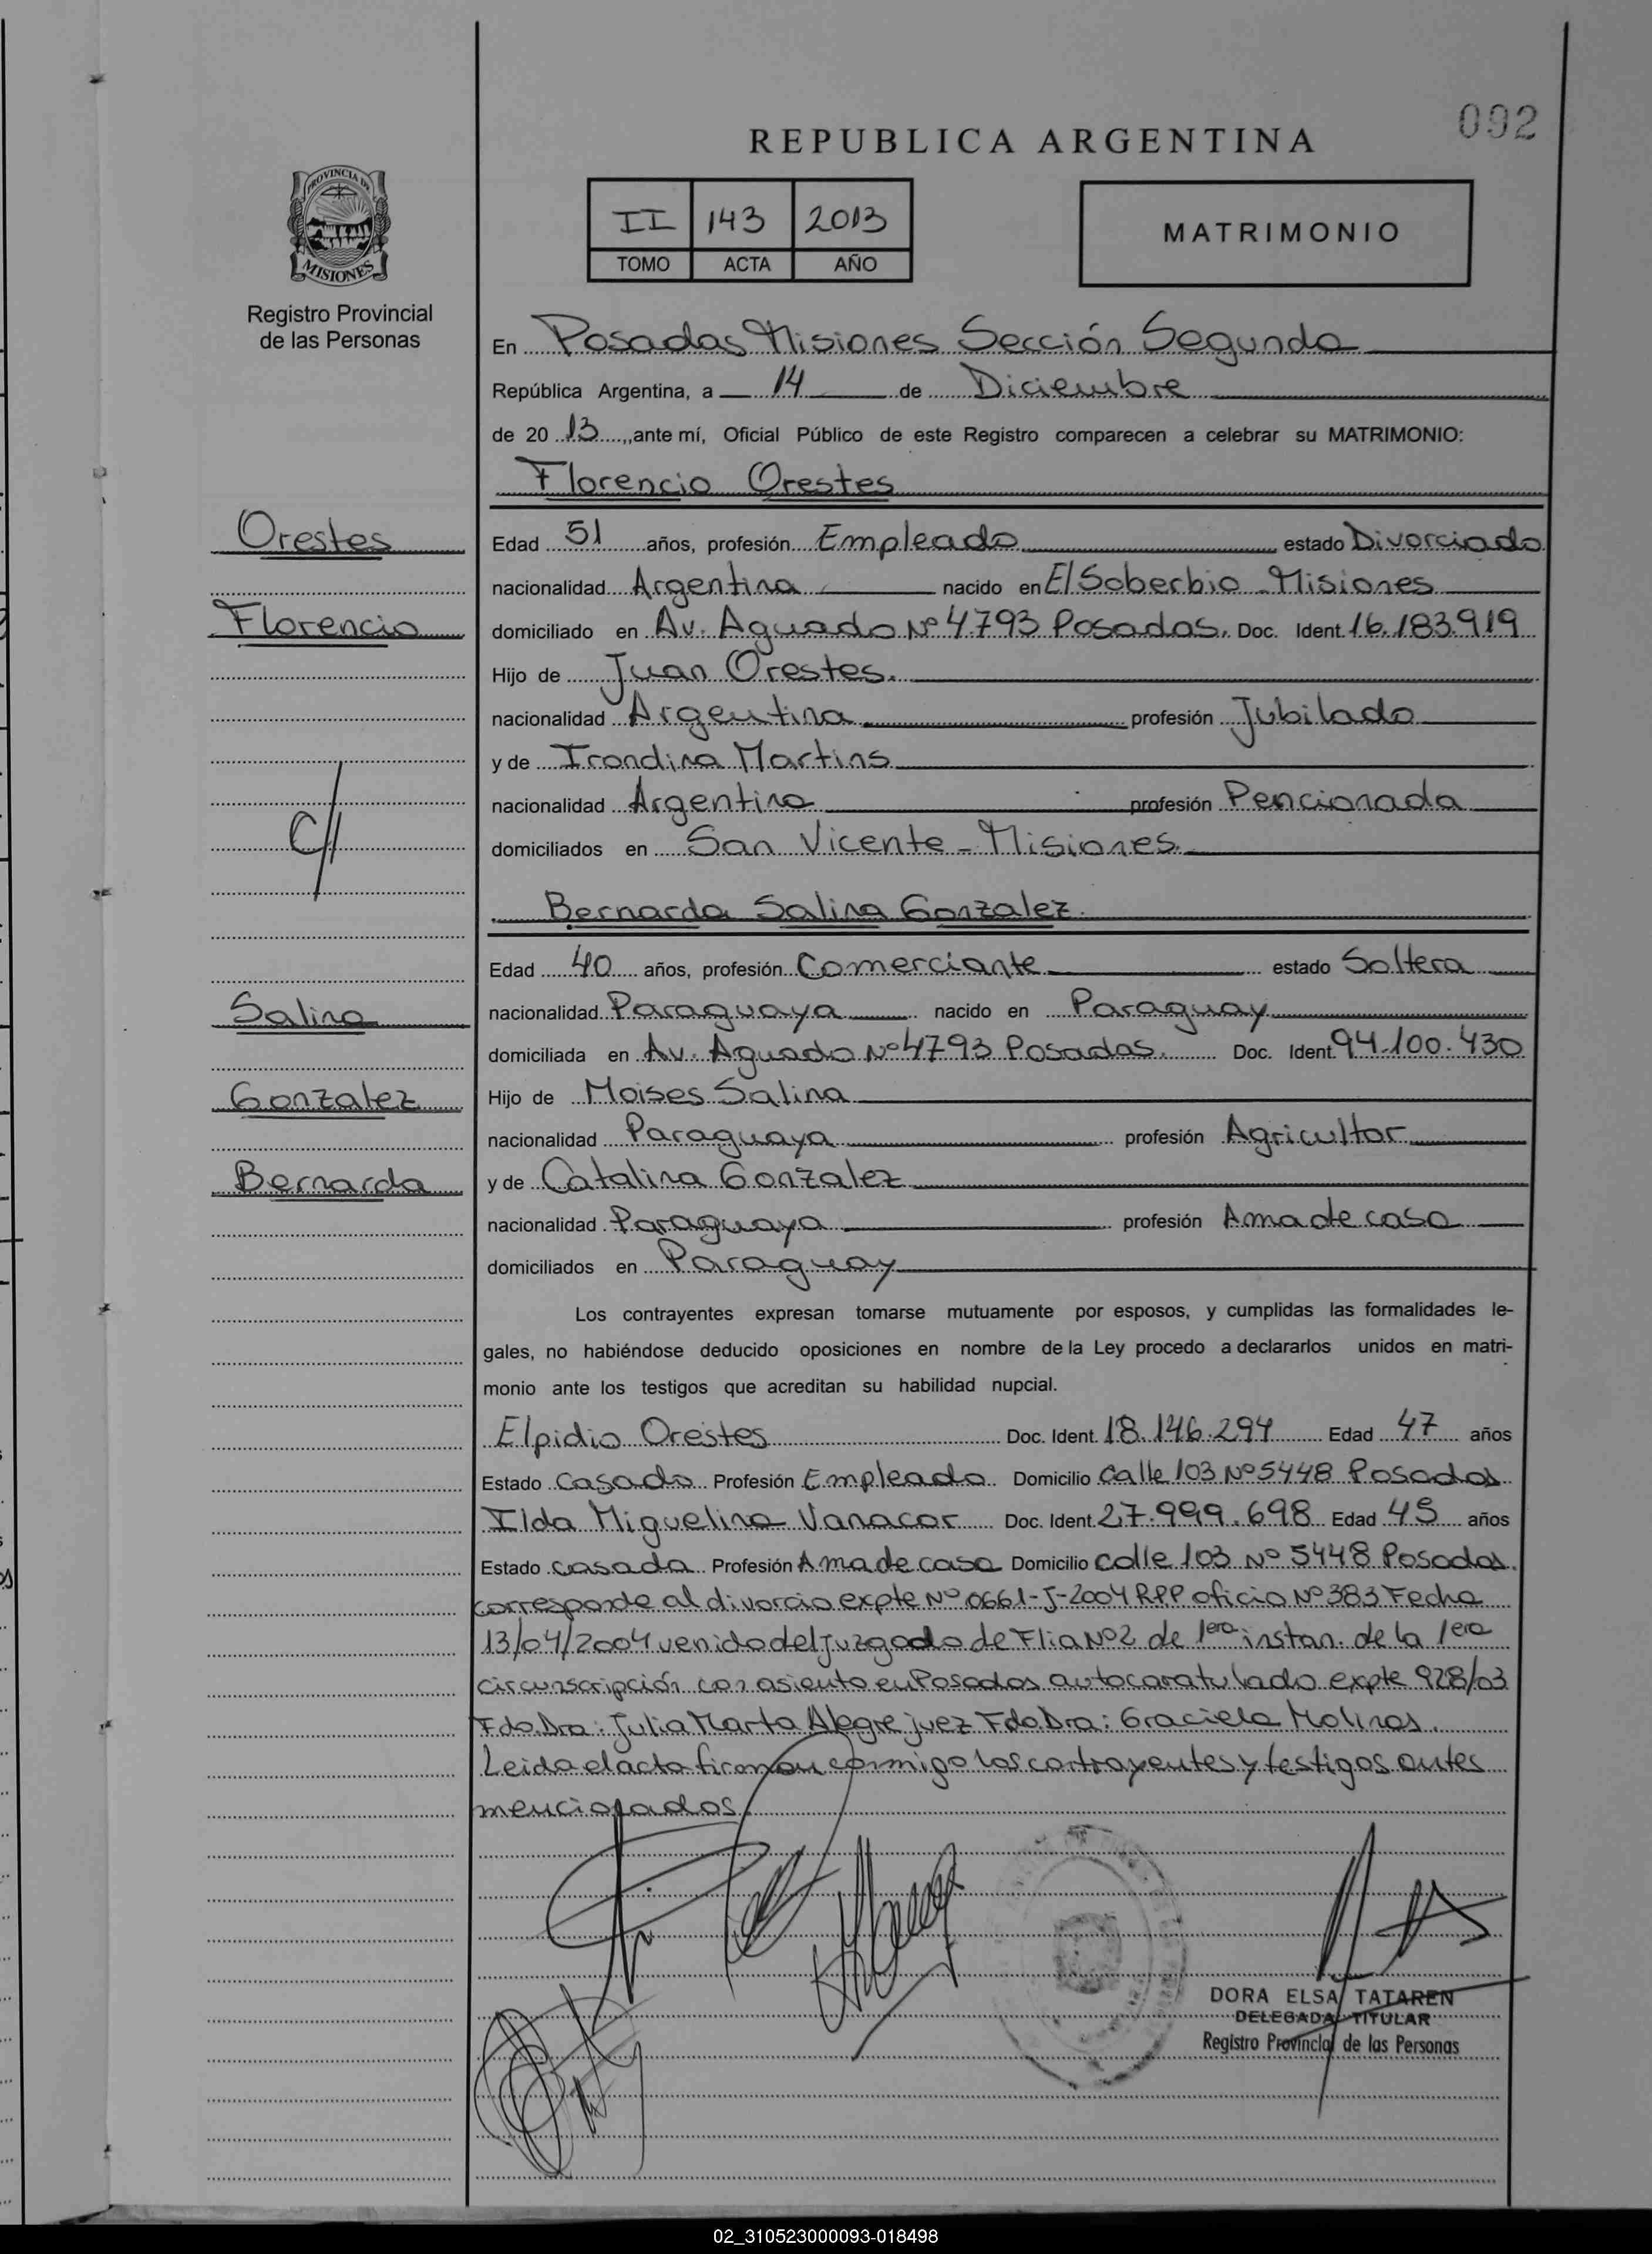 092
REPUBLICA ARGENTINA
PROVINCIA DE
MISIONES
Registro Provincial
de las Personas
II 143 2013
TOMO ACTA AÑO
MATRIMONIO
En Posadas Misiones Sección Segunda
República Argentina, a 14 de Diciembre
de 20 13, ante mí, Oficial Público de este Registro comparecen a celebrar su MATRIMONIO:
Florencio Orestes
Orestes
Edad 51 años, profesión Empleado estado Divorciado
nacionalidad Argentina nacido en El Soberbio - Misiones
Florencio
domiciliado en Av. Aguado Nº 4793 Posadas. Doc. Ident. 16.183.919
Hijo de Juan Orestes.
nacionalidad Argentina profesión Jubilado
y de Irondina Martins
nacionalidad Argentina profesión Pencionada
C//
domiciliados en San Vicente - Misiones.
Bernarda Salina Gonzalez.
Edad 40 años, profesión Comerciante estado Soltera
Salina
nacionalidad Paraguaya nacido en Paraguay
domiciliada en Av. Aguado Nº 4793 Posadas. Doc. Ident. 94.100.430
Gonzalez
Hijo de Moises Salina
nacionalidad Paraguaya profesión Agricultor
Bernarda
y de Catalina Gonzalez
nacionalidad Paraguaya profesión Ama de casa
domiciliados en Paraguay
Los contrayentes expresan tomarse mutuamente por esposos, y cumplidas las formalidades le-
gales, no habiéndose deducido oposiciones en nombre de la Ley procedo a declararlos unidos en matri-
monio ante los testigos que acreditan su habilidad nupcial.
Elpidio Orestes Doc. Ident. 18.146.294 Edad 47 años
Estado Casado Profesión Empleado Domicilio Calle 103 Nº 5448 Posadas
Ilda Miguelina Vanacor Doc. Ident. 27.999.698 Edad 45 años
Estado casada Profesión Ama de casa Domicilio calle 103 Nº 5448 Posadas.
corresponde al divorcio expte Nº 0661-J-2004 RPP oficio Nº 383 Fecha
13/04/2004 venido del Juzgado de Flia Nº2 de 1era instan. de la 1era
circunscripción con asiento en Posadas autocaratulado expte 928/03
Fdo. Dra: Julia Marta Alegre juez Fdo. Dra: Graciela Molinas.
Leida el acta firman conmigo los contrayentes y testigos antes
mencionados.
DORA ELSA TATAREN
DELEGADA TITULAR
Registro Provincial de las Personas
02_310523000093-018498